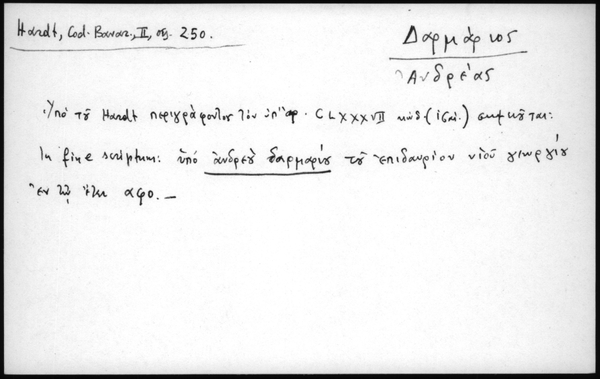 Hardt, Cod. Bavar., II, σελ. 250.
Δαρμάριος
Ἀνδρέας
Ὑπό τοῦ Hardt περιγράφοντος τόν ὑπ' ἀρ. CLXXXVII κώδ. ( ) σημειοῦται:
In fine scriptum: ὑπό ἀνδρέου δαρμαρίου τοῦ ἐπιδαυρίου υἱοῦ γεωργίου
ἐν τῷ ἔτει αφο. —